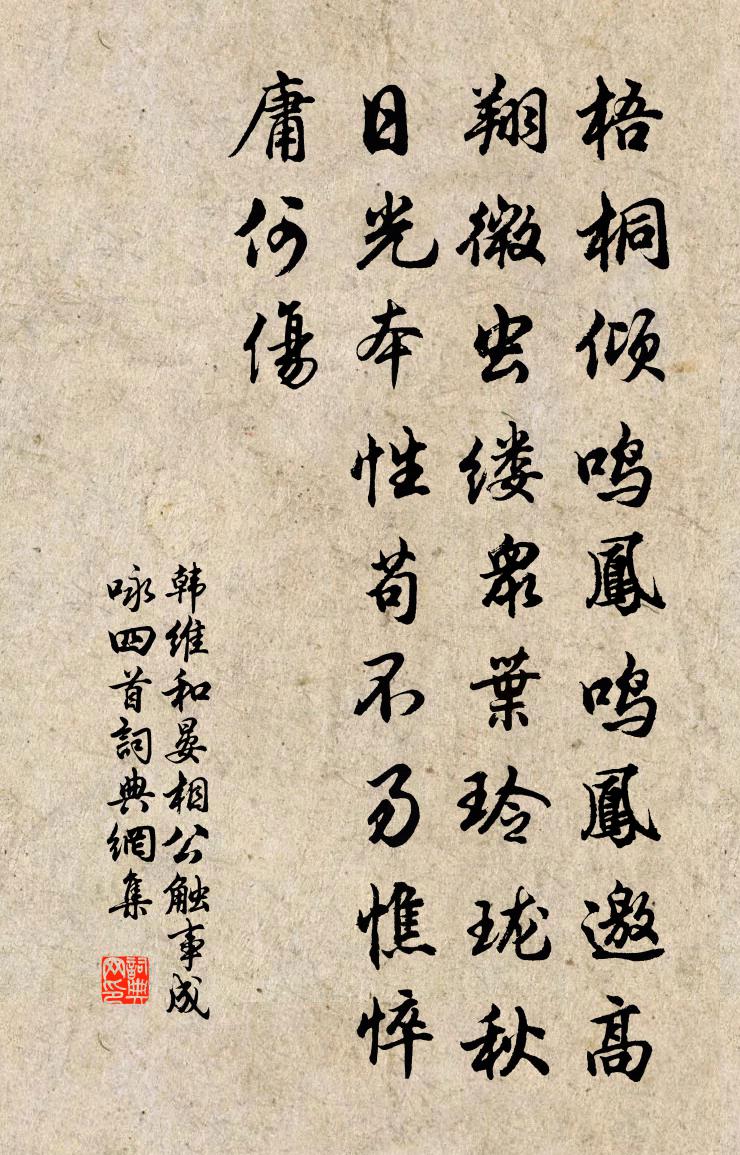 梧桐倾鸣鳳鸣鳳邀高
翔微虫缕衆葉玲珑秋
日光本性苟不易憔悴
庸何傷
韩维和晏相公触事成
咏四首詞典網集
詞典网印